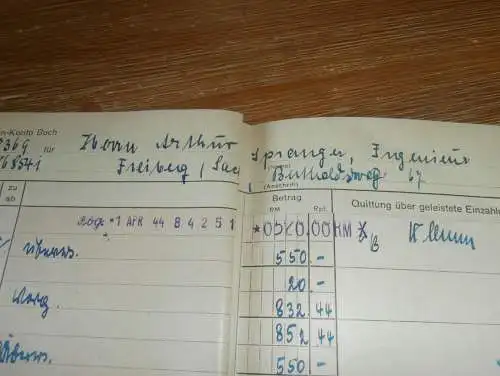 n-Konto Buch
369 für Herrn Arthur Spranger, Ingenieur
68541 Freiberg, Sa., Bertholdsweg 67
(Anschrift)
zu
ab
Betrag
RM Rpf.
Quittung über geleistete Einzahl
*1 APR 44 8 4 2 5 1 *0520.00HM
überw. 550 -
20 -
Vorg. 832 44
852 44
Überw. 550 -